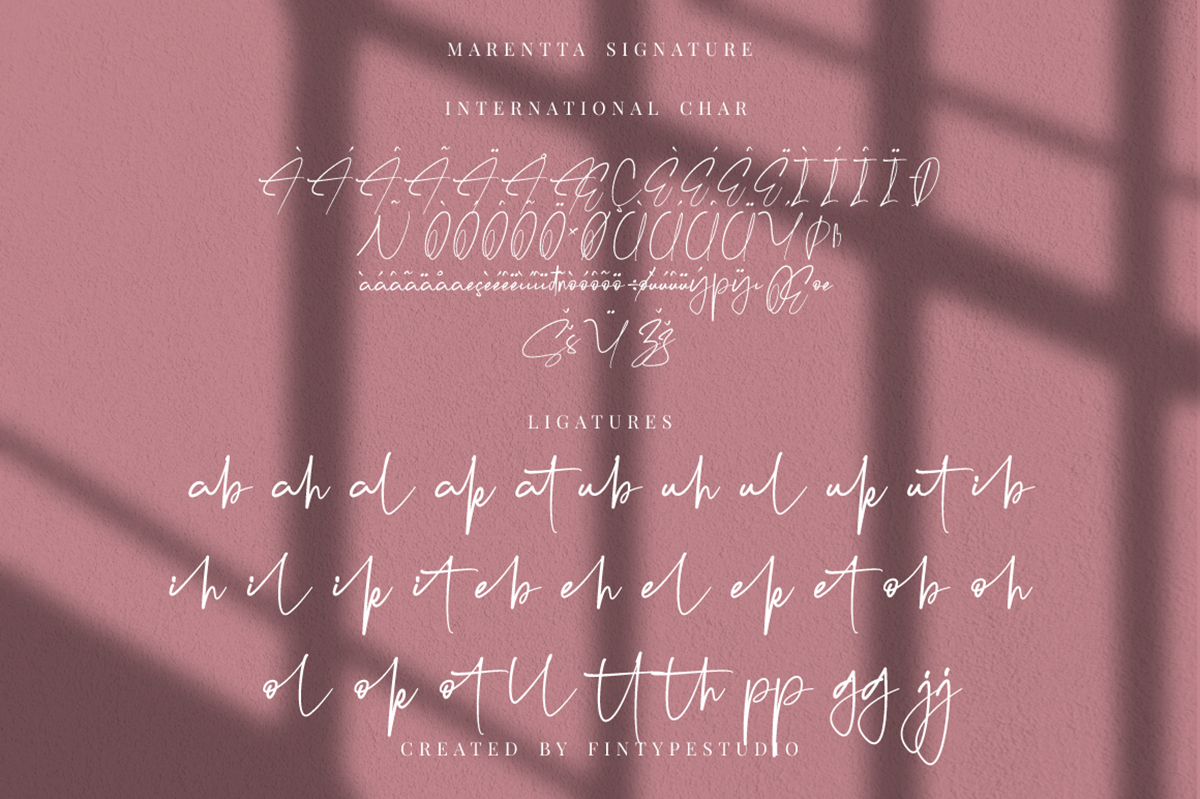 MARENTTA SIGNATURE
INTERNATIONAL CHAR
ÀÁÂÃÄÅÆÇÈÉÊËÌÍÎÏÐ
ÑÒÓÔÕÖ×ØÙÚÛÜÝÞß
àáâãäåæçèéêëìíîïðñòóôõö÷øùúûüýþÿıŒœ
ŠšŸŽž
LIGATURES
ab ah al ak at ub uh ul uk ut ib
ih il ik it eb eh el ek et ob oh
ol ok ot ll tt th pp gg jj
CREATED BY FINTYPESTUDIO